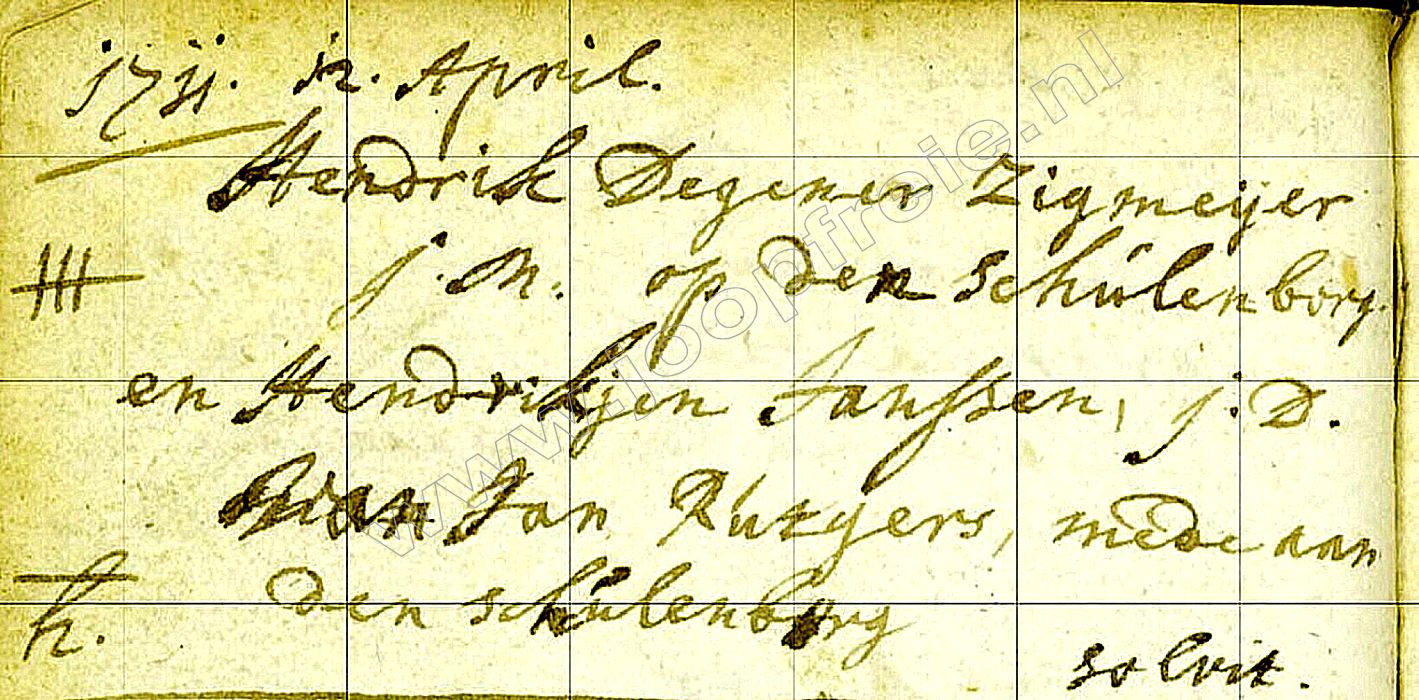 1731. 12. April.
Hendrik Degener Zigmeijer
j. M. op den schúlenborg.
en Hendrikjen Janssen, j. D.
Jan Rútgers, mede aan
den schúlenborg
h.
solvit.
www.joopfreie.nl